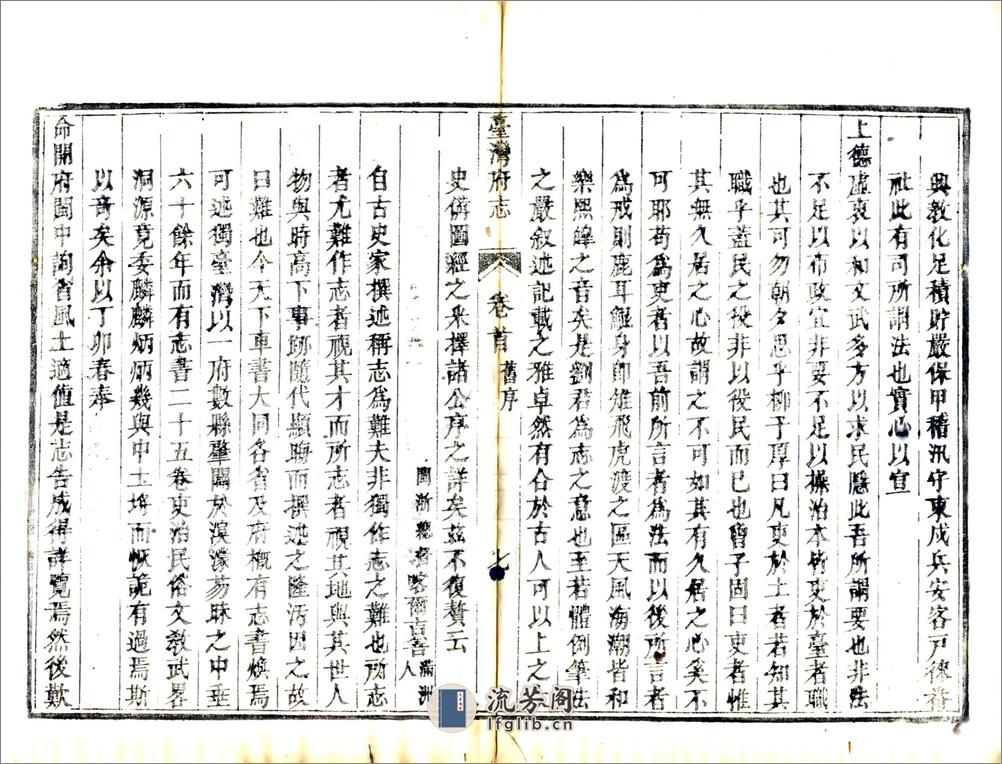 興教化足積貯嚴保甲稽汛守柬戍兵安客戸徠番
社此有司所謂法也實心以宣
上德虛衷以和文武多方以求民隱此吾所謂要也非法
不足以布政宜非要不足以操治本皆吏於臺者職
也其可勿朝夕思乎柳子厚曰凡吏於土者若知其
職乎蓋民之役非以役民而已也曾子固曰吏者惟
其無久居之心故謂之不可如其有久居之心奚不
可耶苟為吏者以吾前所言者為法而以後所言者
為戒則鹿耳鯤身即雉飛虎渡之區天風海潮皆和
樂熙皞之音矣是劉君為志之意也至若體例筆法
之嚴叙述記載之雅卓然有合於古人可以上之
史備圖經之采擇諸公序之詳矣茲不復贅云
臺灣府志 卷首 舊序 七
閩浙總督喀爾吉善 滿洲人
自古史家撰述稱志為難夫非獨作志之難也所志
者尤難作志者視其才而所志者視其地與其世人
物與時高下事跡隨代顯晦而撰述之隆汚因之故
曰難也今天下車書大同各省及府概有志書煥焉
可述獨臺灣以一府數縣肇闢於溟濛荒昧之中垂
六十餘年而有志書二十五卷吏治民俗文教武畧
洞源竟委麟麟炳炳幾與中土埒而恢詭有過焉斯
以奇矣余以丁卯春奉
命開府閩中詢省風土適值是志告成得詳覽焉然後歎
流芳阁
lfglib.cn